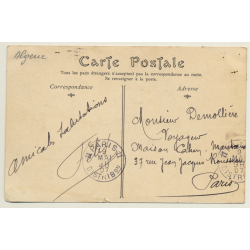 Algerie
Carte Postale
Tous les pays étrangers n'acceptent pas la correspondance au recto.
Se renseigner à la poste.
Correspondance
Adresse
Amicales Salutations
Monsieur Demollière
Voyageur
Maison Cahen,
37 rue Jean Jacques Rousseau
Paris
PARIS
MAI